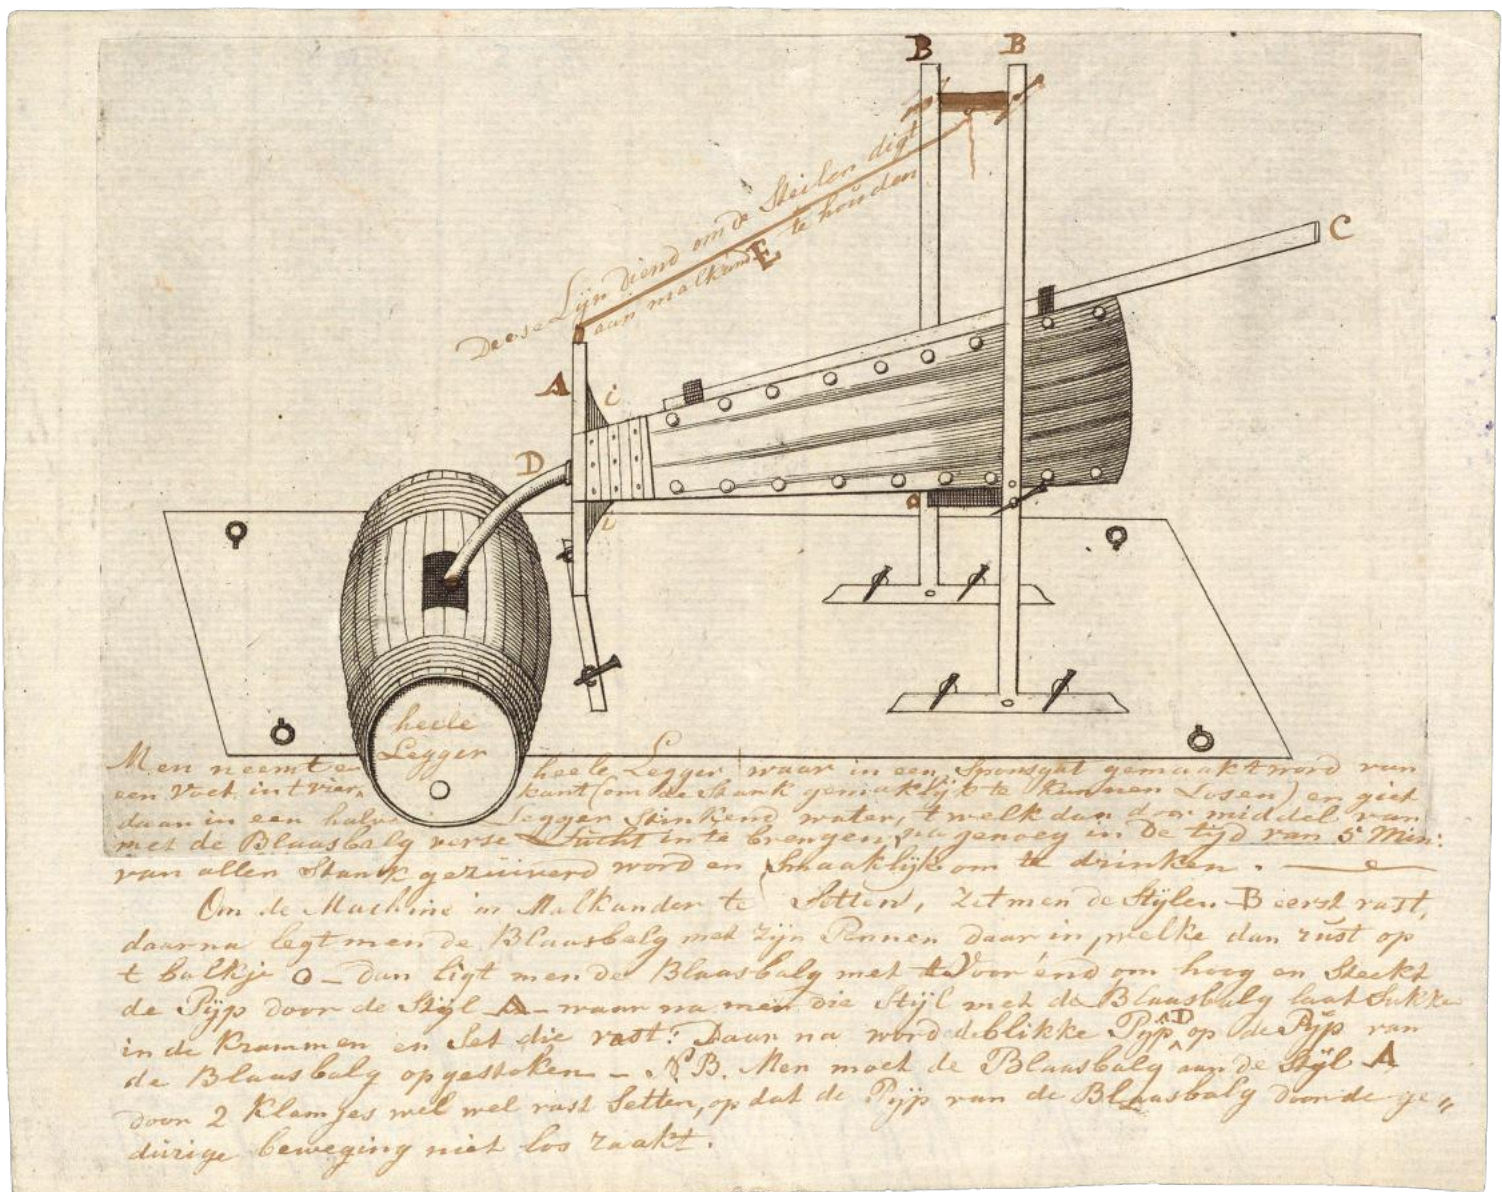 B B
C
Deese Lijn diend om de Steilen digt
aan malkand. te houden
E
A i
D
i
o
heele
Legger
Men neemt e heele Legger waar in een Sponsgat gemaakt word van
een Voet in t vier kant (om de Stank gemaklijk te kunnen Losen) en giet
daar in een halve Legger Stinkend water, t welk dan door middel van
met de Blaasbalg verse Lucht in te brengen, genoeg in de tijd van 5 Min:
van allen Stank gezuiverd word en Smaaklijk om te drinken.
Om de Machine in Malkander te Setten, Zet men de Stijlen B eerst vast,
daarna legt men de Blaasbalg met zijn Pennen daar in, welke dan rust op
t balkje O - Dan ligt men de Blaasbalg met Voor end om hoog en Steekt
de Pijp door de Stijl A - waar na men die Stijl met de Blaasbalg laat Sakke
in de Krammen en Set die vast: Daar na word de blikke Pijp D op de Pijp van
de Blaasbalg opgestoken - NB. Men moet de Blaasbalg aan de Stijl A
door 2 Klamjes wel wel vast Setten, op dat de Pijp van de Blaasbalg door de ge„
durige beweging niet los raakt.